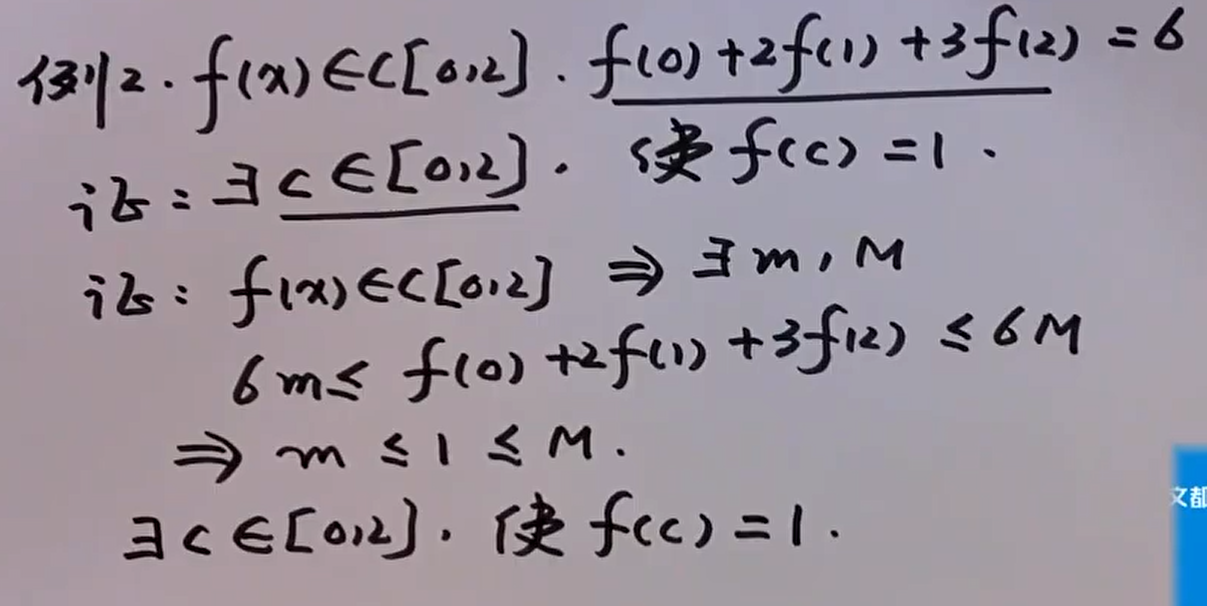 例2. f(x)∈C[0,2]. f(0)+2f(1)+3f(2)=6
证:∃c∈[0,2]. 使f(c)=1.
证:f(x)∈C[0,2] ⇒ ∃m,M
6m≤ f(0)+2f(1)+3f(2) ≤6M
⇒ m≤1≤M.
∃c∈[0,2]. 使f(c)=1.
文都